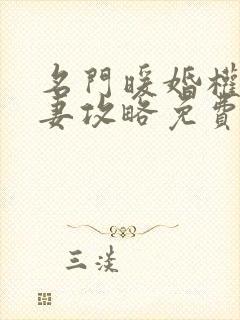 名門暖婚權
妻攻略免費
三淡